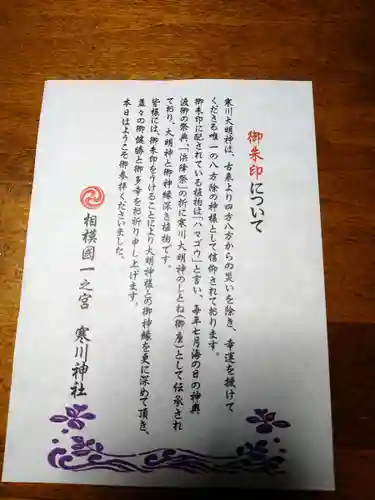 御朱印について
寒川大明神は、古来より四方八方からの災いを除き、幸運を授けて
くださる唯一の八方除の神様として信仰されて居ります。
御朱印に配されている植物は「ハマゴウ」と言い、毎年七月海の日の神輿
渡御の祭典、「浜降祭」の折に寒川大明神のしとね(御座)として伝承され
て居り、大明神と御神縁深き植物です。
皆様には、御朱印をうけることにより大明神様との御神縁を更に深めて頂き、
益々の御健勝と御多幸をお祈り申し上げます。
本日はようこそ御参拝くださいました。
相模國一之宮 寒川神社